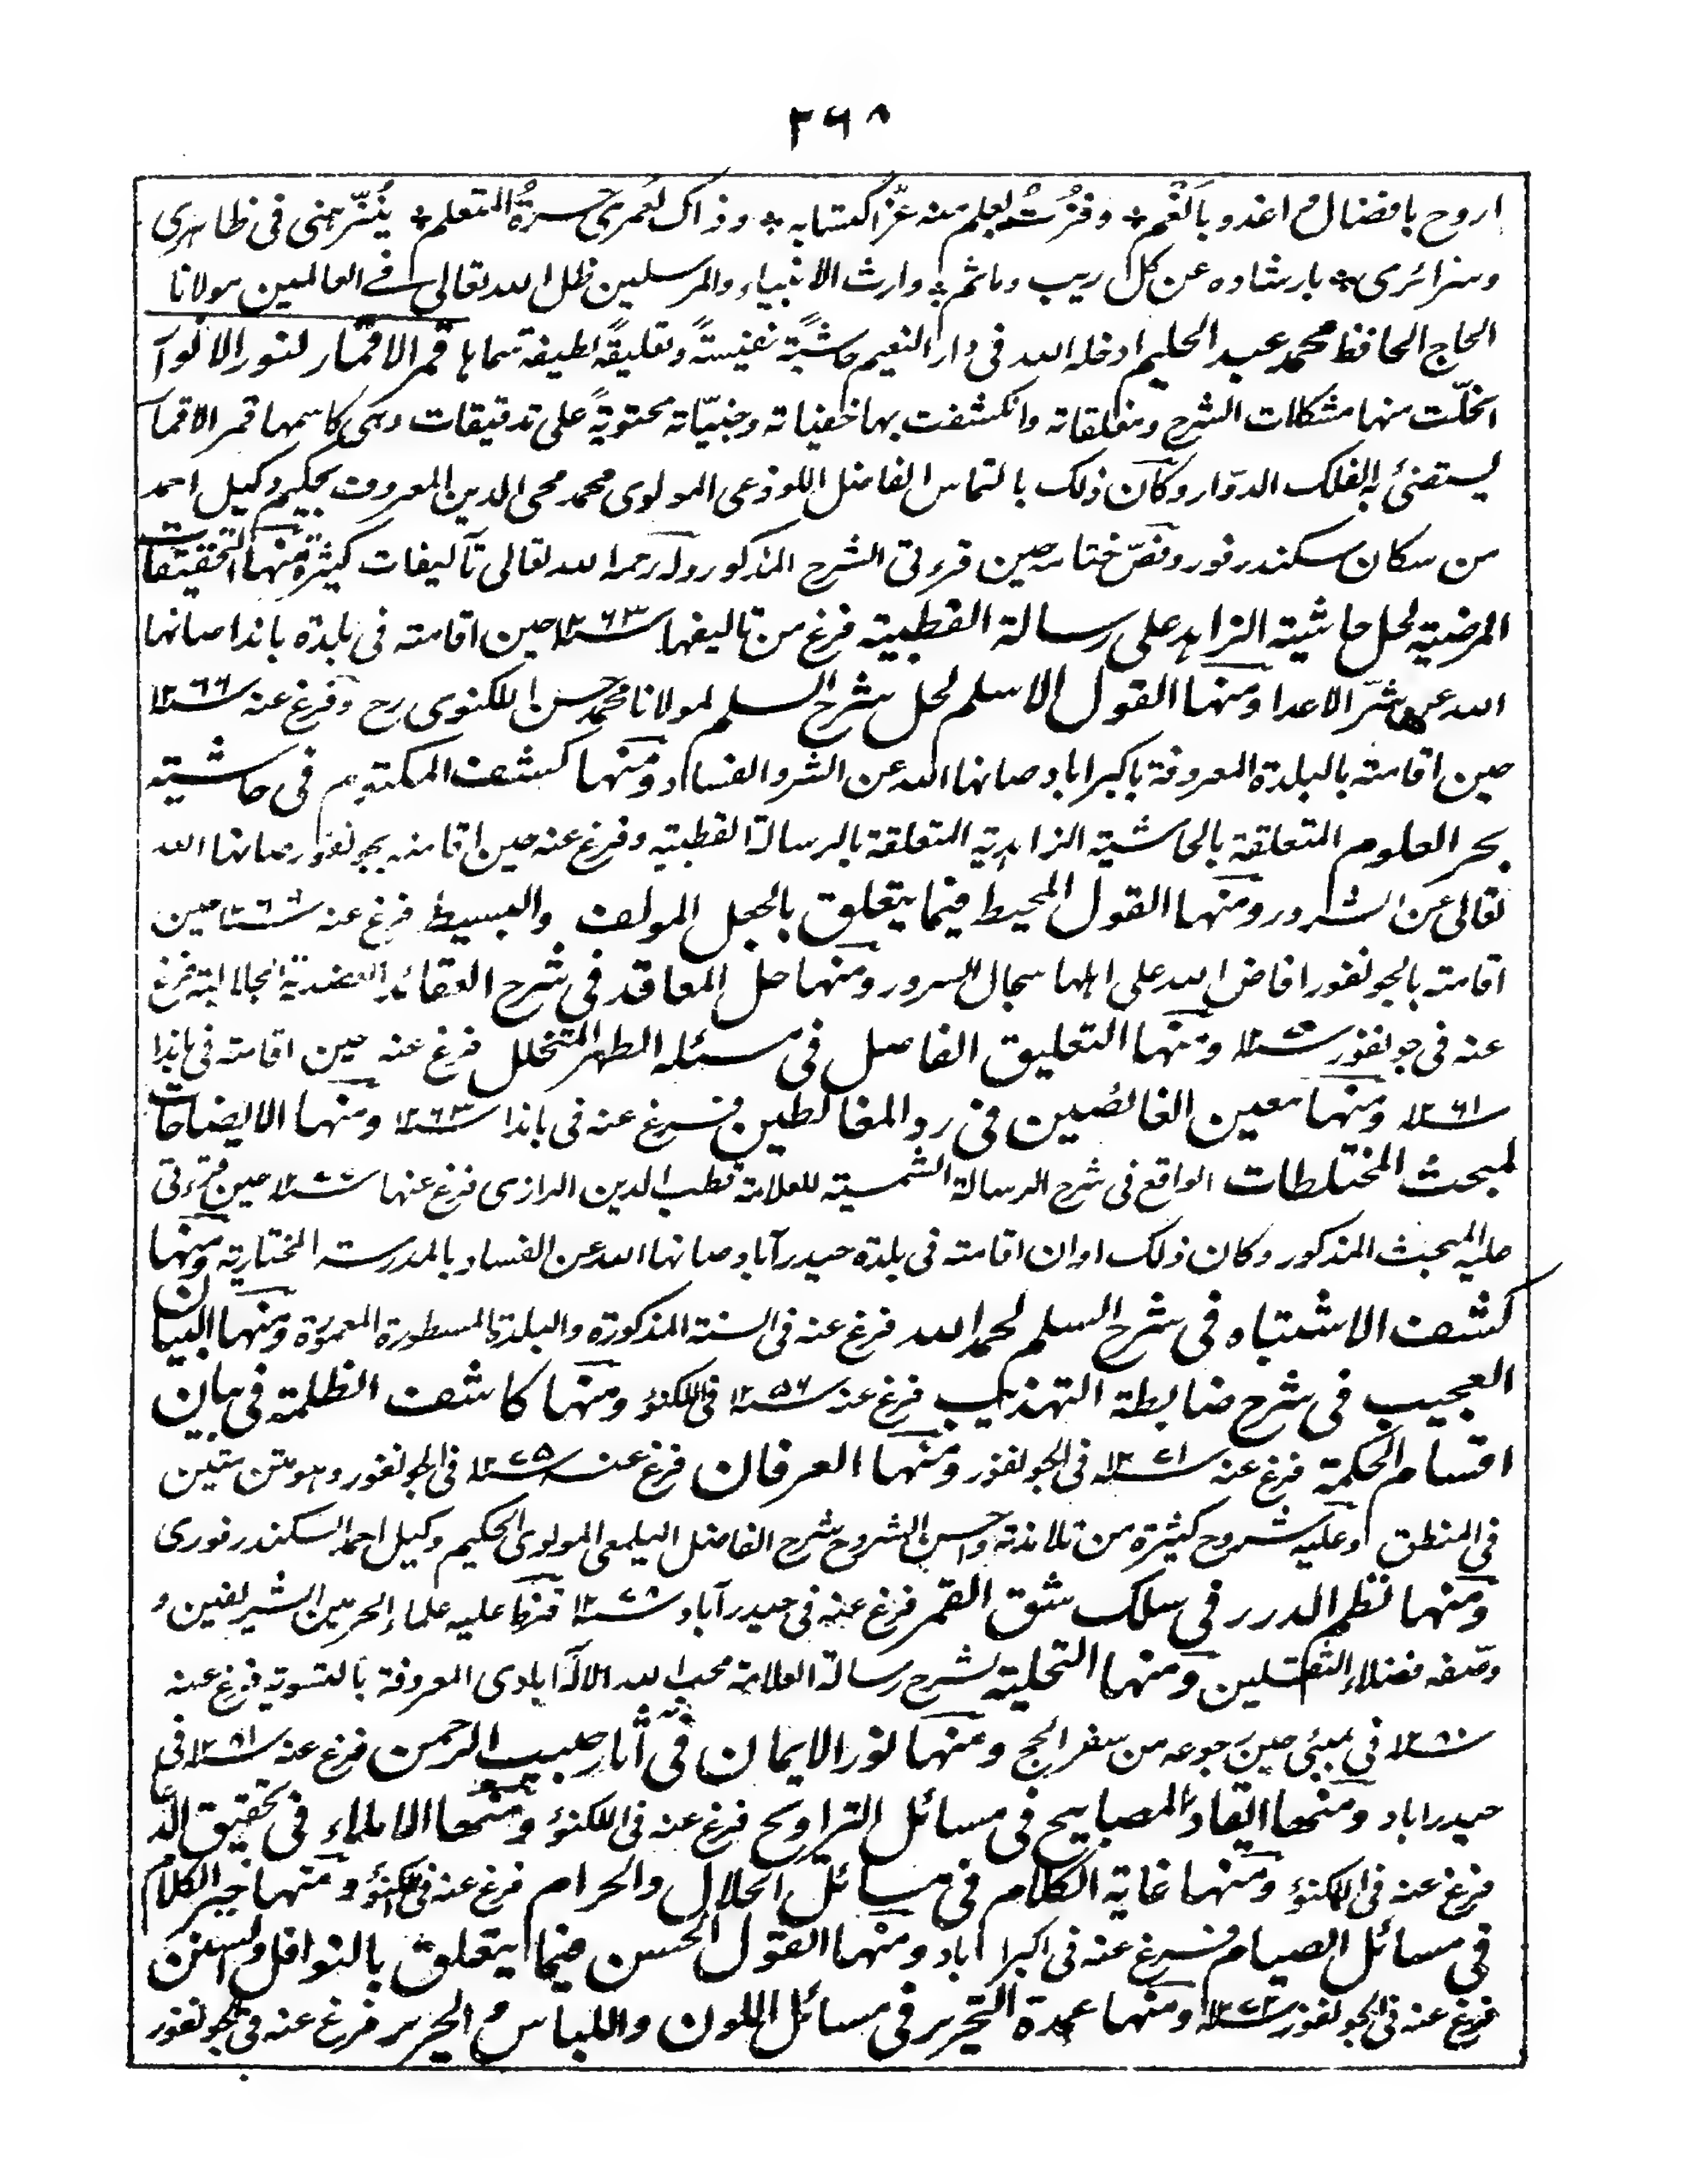 ۲۶۸
اروح بافضال و اغدو بانعم * وفزت بعلم منه عز اكتسابه * وذاك لعمري حسرة المتعلم * ينزهني في ظاهري
وسرائري * بارشاده عن كل ريب وماثم * وارث الانبياء والمرسلين ظل الله تعالى في العالمين مولانا
الحاج الحافظ محمد عبد الحليم ادخله الله في دار النعيم حاشيةً نفيسةً وتعليقةً لطيفة سماها قمر الاقمار لنور الانوار
انحلّت منها مشكلات الشرح ومغلقاته وانكشفت بها خفياته وخبيّاته محتويةً على تدقيقات وهي كاسمها قمر الاقمار
ليستضئ به الفلك الدوّار وكان ذلك بالتماس الفاضل اللوذعي المولوي محمد محي الدين المعروف بحكيم وكيل احمد
من سكان سكندرفور ونصّ ختامه حين قرءتي الشرح المذكور وله رحمه الله تعالى تآليفات كثيرة منها التحقيقات
المرضية لحل حاشية الزاهد على رسالة القطبية فرغ من تاليفها سنة ۱۲۶۳ حين اقامته في بلدة باندا صانها
الله عن شرّ الاعدا ومنها القول الاسلم لحل شرح السلم لمولانا محمد حسن اللكنوي رح وفرغ عنه سنة ۱۲۶۶
حين اقامته بالبلدة المعروفة باكبراباد صانها الله عن الشر والفساد ومنها كشف المكتوم في حاشية
بحر العلوم المتعلقة بالحاشية الزاهدية المتعلقة بالرسالة القطبية وفرغ عنه حين اقامته بجونفور صانها الله
تعالى عن الشرور ومنها القول المحيط فيما يتعلق بالجعل المولف والبسيط فرغ عنه سنة حين
اقامته بالجونفور افاض الله على اهلها سجال السرور ومنها حل المعاقد في شرح العقائد العضدية الجلالية فرغ
عنه في جونفور سنة ومنها التعليق الفاصل في مسئله الطهر المتخلل فرغ عنه حين اقامته في باندا
سنة ۱۲۶۱ ومنها معين الغائصين في رد المغالطين فرغ عنه في باندا سنة ۱۲۶۳ ومنها الايضاحات
لمبحث المختلطات الواقع في شرح الرسالة الشمسية للعلامة قطب الدين الرازي فرغ عنها سنة حين قرءتي
عليه المبحث المذكور وكان ذلك اوان اقامته في بلدة حيدرآباد صانها الله عن الفساد بالمدرسة المختارية ومنها
كشف الاشتباه في شرح السلم لحمد الله فرغ عنه في السنة المذكورة والبلدة المسطورة المعمورة ومنها البيان
العجيب في شرح ضابطة التهذيب فرغ عنه سنة ۱۲۵۶ في اللكنؤ ومنها كاشف الظلمة في بيان
اقسام الحكمة فرغ عنه سنة ۱۲۷۱ في الجونفور ومنها العرفان فرغ عنه سنة ۱۲۷۵ في الجونفور وهو متن متين
في المنطق وعليه شروح كثيرة من تلامذته واحسن الشروح شرح الفاضل اليلمعي المولوي الحكيم وكيل احمد السكندرفوري
ومنها نظم الدرر في سلك شق القمر فرغ عنه في حيدرآباد سنة ۱۲۷۸ قرظ عليه علماء الحرمين الشريفين و
وصفه فضلاء الثقلين ومنها التحلية لشرح رسالة العلامة محب الله الالٰه آبادي المعروفة بالتسوية فرغ عنه
سنة ۱۲۸۰ في بمبئي حين رجوعه من سفر الحج ومنها نور الايمان في آثار حبيب الرحمن فرغ عنه سنة ۱۲۸۱ في
حيدراباد ومنها ايقاد المصابيح في مسائل التراويح فرغ عنه في اللكنؤ ومنها الاملاء في تحقيق الدعاء
فرغ عنه في اللكنؤ ومنها غاية الكلام في مسائل الحلال والحرام فرغ عنه في اللكنؤ ومنها خير الكلام
في مسائل الصيام فرغ عنه في اكبراباد ومنها القول الحسن فيما يتعلق بالنوافل والسنن
فرغ عنه في الجونفور سنة ومنها عمدة التحرير في مسائل اللون واللباس والحرير فرغ عنه في الجونفور